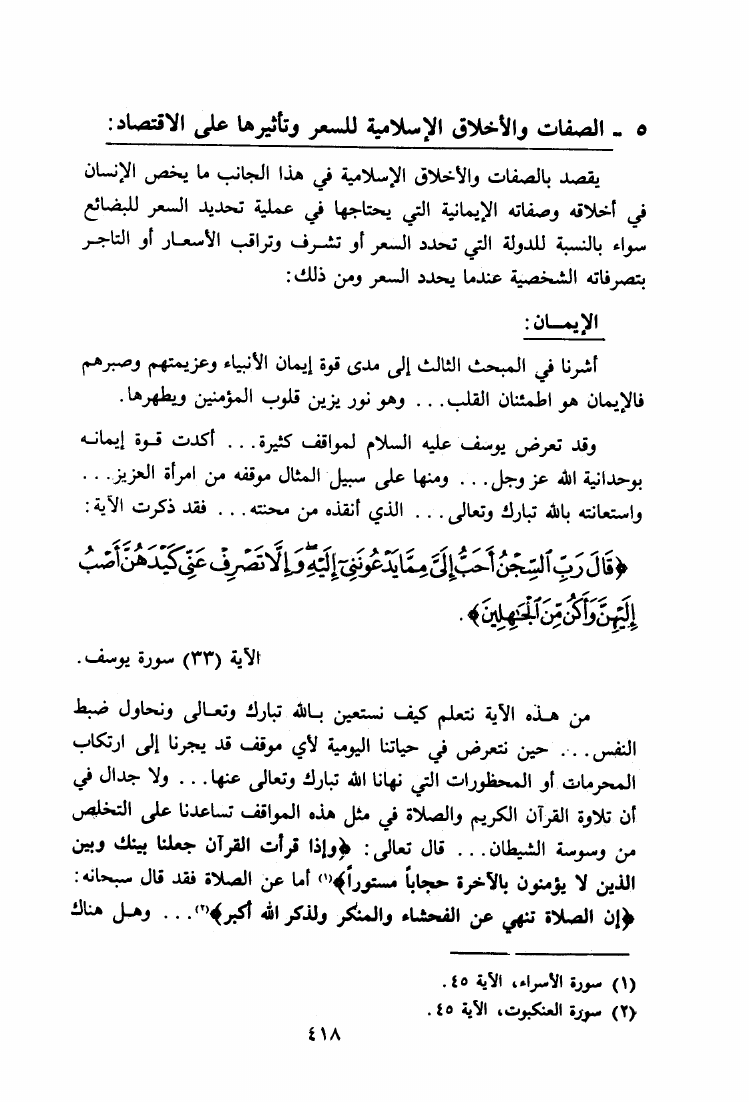 ٥ - الصفات والأخلاق الإسلامية للسعر وتأثيرها على الاقتصاد:
يقصد بالصفات والأخلاق الإسلامية في هذا الجانب ما يخص الإنسان
في أخلاقه وصفاته الإيمانية التي يحتاجها في عملية تحديد السعر للبضائع
سواء بالنسبة للدولة التي تحدد السعر أو تشـرف وتراقب الأسعـار أو التاجـر
بتصرفاته الشخصية عندما يحدد السعر ومن ذلك:
الإيمـــان:
أشرنا في المبحث الثالث إلى مدى قوة إيمان الأنبياء وعزيمتهم وصبرهم
فالإيمان هو اطمئنان القلب... وهو نور يزين قلوب المؤمنين ويطهرها.
وقد تعرض يوسف عليه السلام لمواقف كثيرة... أكدت قـوة إيمانـه
بوحدانية الله عز وجل... ومنها على سبيل المثال موقفه من امرأة العزيز...
واستعانته بالله تبارك وتعالى... الذي أنقذه من محنته... فقد ذكرت الآية:
﴿قَالَ رَبِّ ٱلسِّجْنُ أَحَبُّ إِلَيَّ مِمَّا يَدْعُونَنِىٓ إِلَيْهِ ۖ وَإِلَّا تَصْرِفْ عَنِّى كَيْدَهُنَّ أَصْبُ
إِلَيْهِنَّ وَأَكُن مِّنَ ٱلْجَـٰهِلِينَ﴾.
الآية (٣٣) سورة يوسف.
من هـذه الآية نتعلم كيف نستعين بـالله تبارك وتعـالى ونحاول ضبط
النفس... حين نتعرض في حياتنا اليومية لأي موقف قد يجرنا إلى ارتكاب
المحرمات أو المحظورات التي نهانا الله تبارك وتعالى عنها... ولا جدال في
أن تلاوة القرآن الكريم والصلاة في مثل هذه المواقف تساعدنا على التخلص
من وسوسة الشيطان... قال تعالى: ﴿وإذا قرأت القرآن جعلنا بينك وبين
الذين لا يؤمنون بالآخرة حجاباً مستوراً﴾(١) أما عن الصلاة فقد قال سبحانه:
﴿إن الصلاة تنهي عن الفحشاء والمنكر ولذكر الله أكبر﴾(٢)... وهـل هناك
(١) سورة الأسراء، الآية ٤٥.
(٢) سورة العنكبوت، الآية ٤٥.
٤١٨